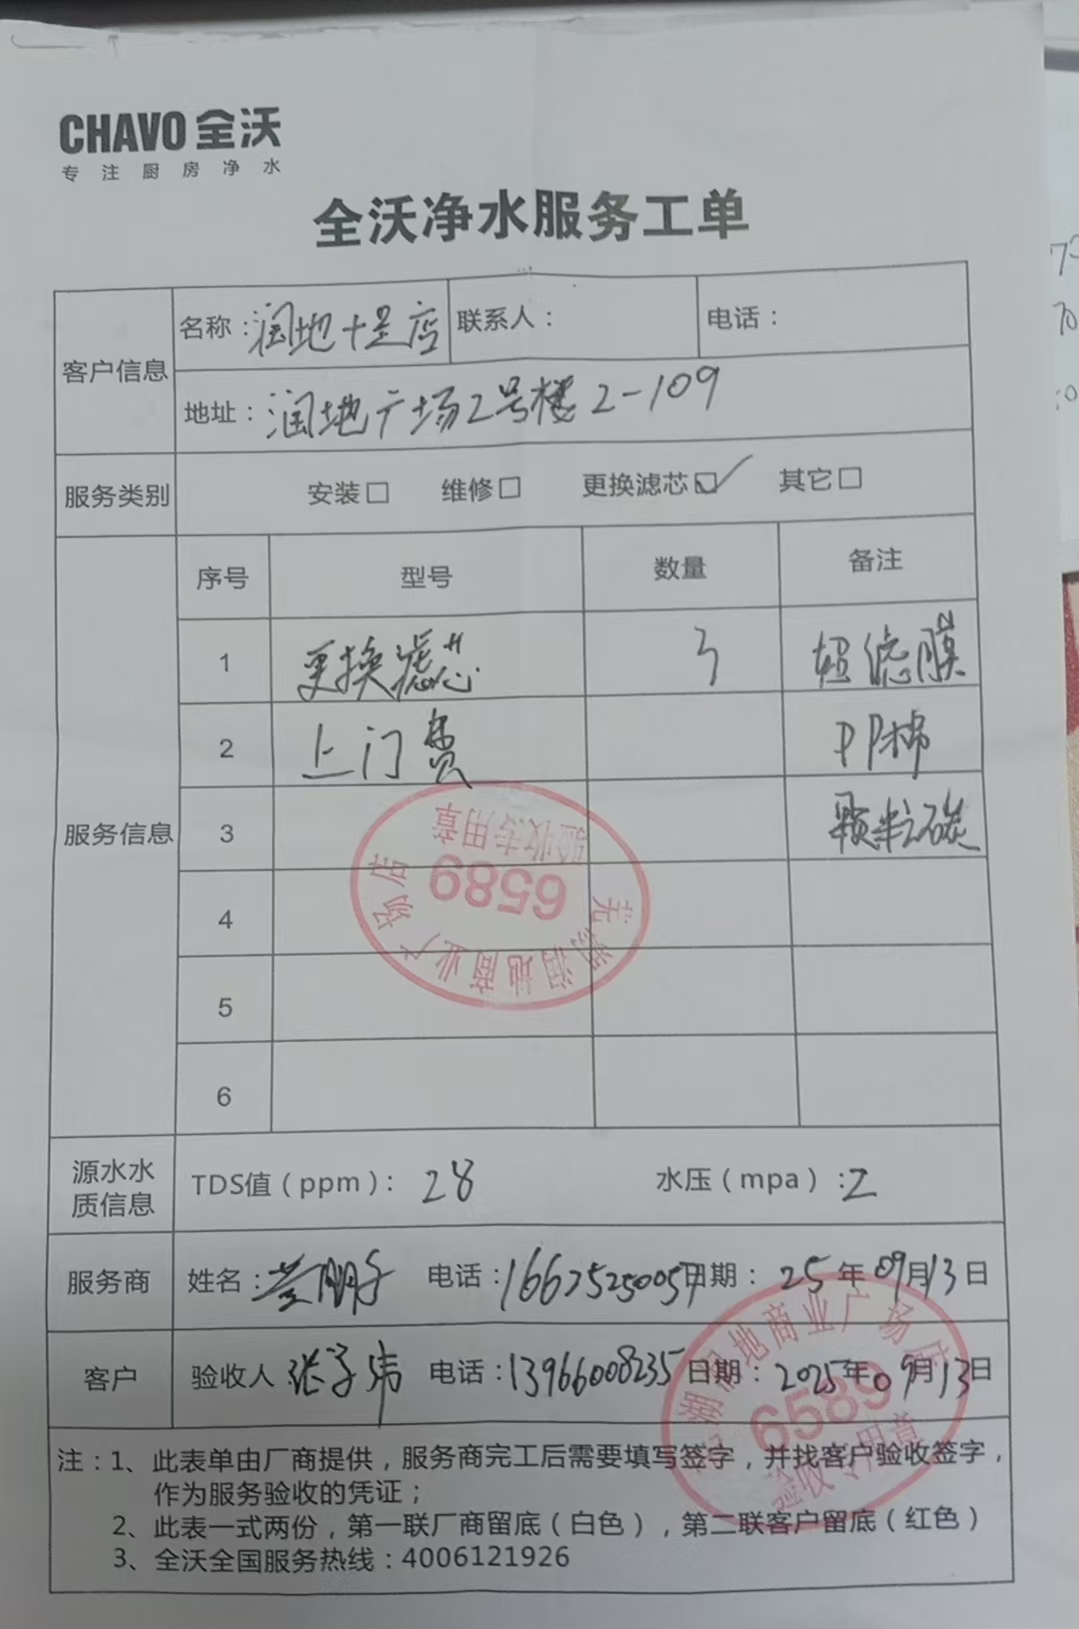 CHAVO 全沃
专注厨房净水
全沃净水服务工单
客户信息 名称：润地十足店 联系人： 电话：
地址：润地广场2号楼2-109
服务类别 安装□ 维修□ 更换滤芯☑ 其它□
服务信息 序号 型号 数量 备注
1 更换滤芯 3 超滤膜
2 上门费 PP棉
3 颗粒碳
4
5
6
验收专用章
6589
芜湖润地商业广场店
源水水质信息 TDS值（ppm）：28 水压（mpa）：2
服务商 姓名： 电话：16625250057 日期：25年09月13日
客户 验收人 张子炜 电话：13966008235 日期：2025年09月13日
芜湖润地商业广场店
6589
验收专用章
注：1、此表单由厂商提供，服务商完工后需要填写签字，并找客户验收签字，
作为服务验收的凭证；
2、此表一式两份，第一联厂商留底（白色），第二联客户留底（红色）
3、全沃全国服务热线：4006121926